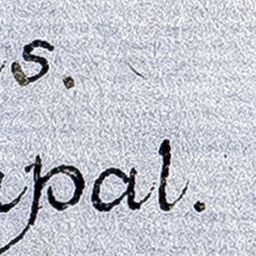 s.
pal.